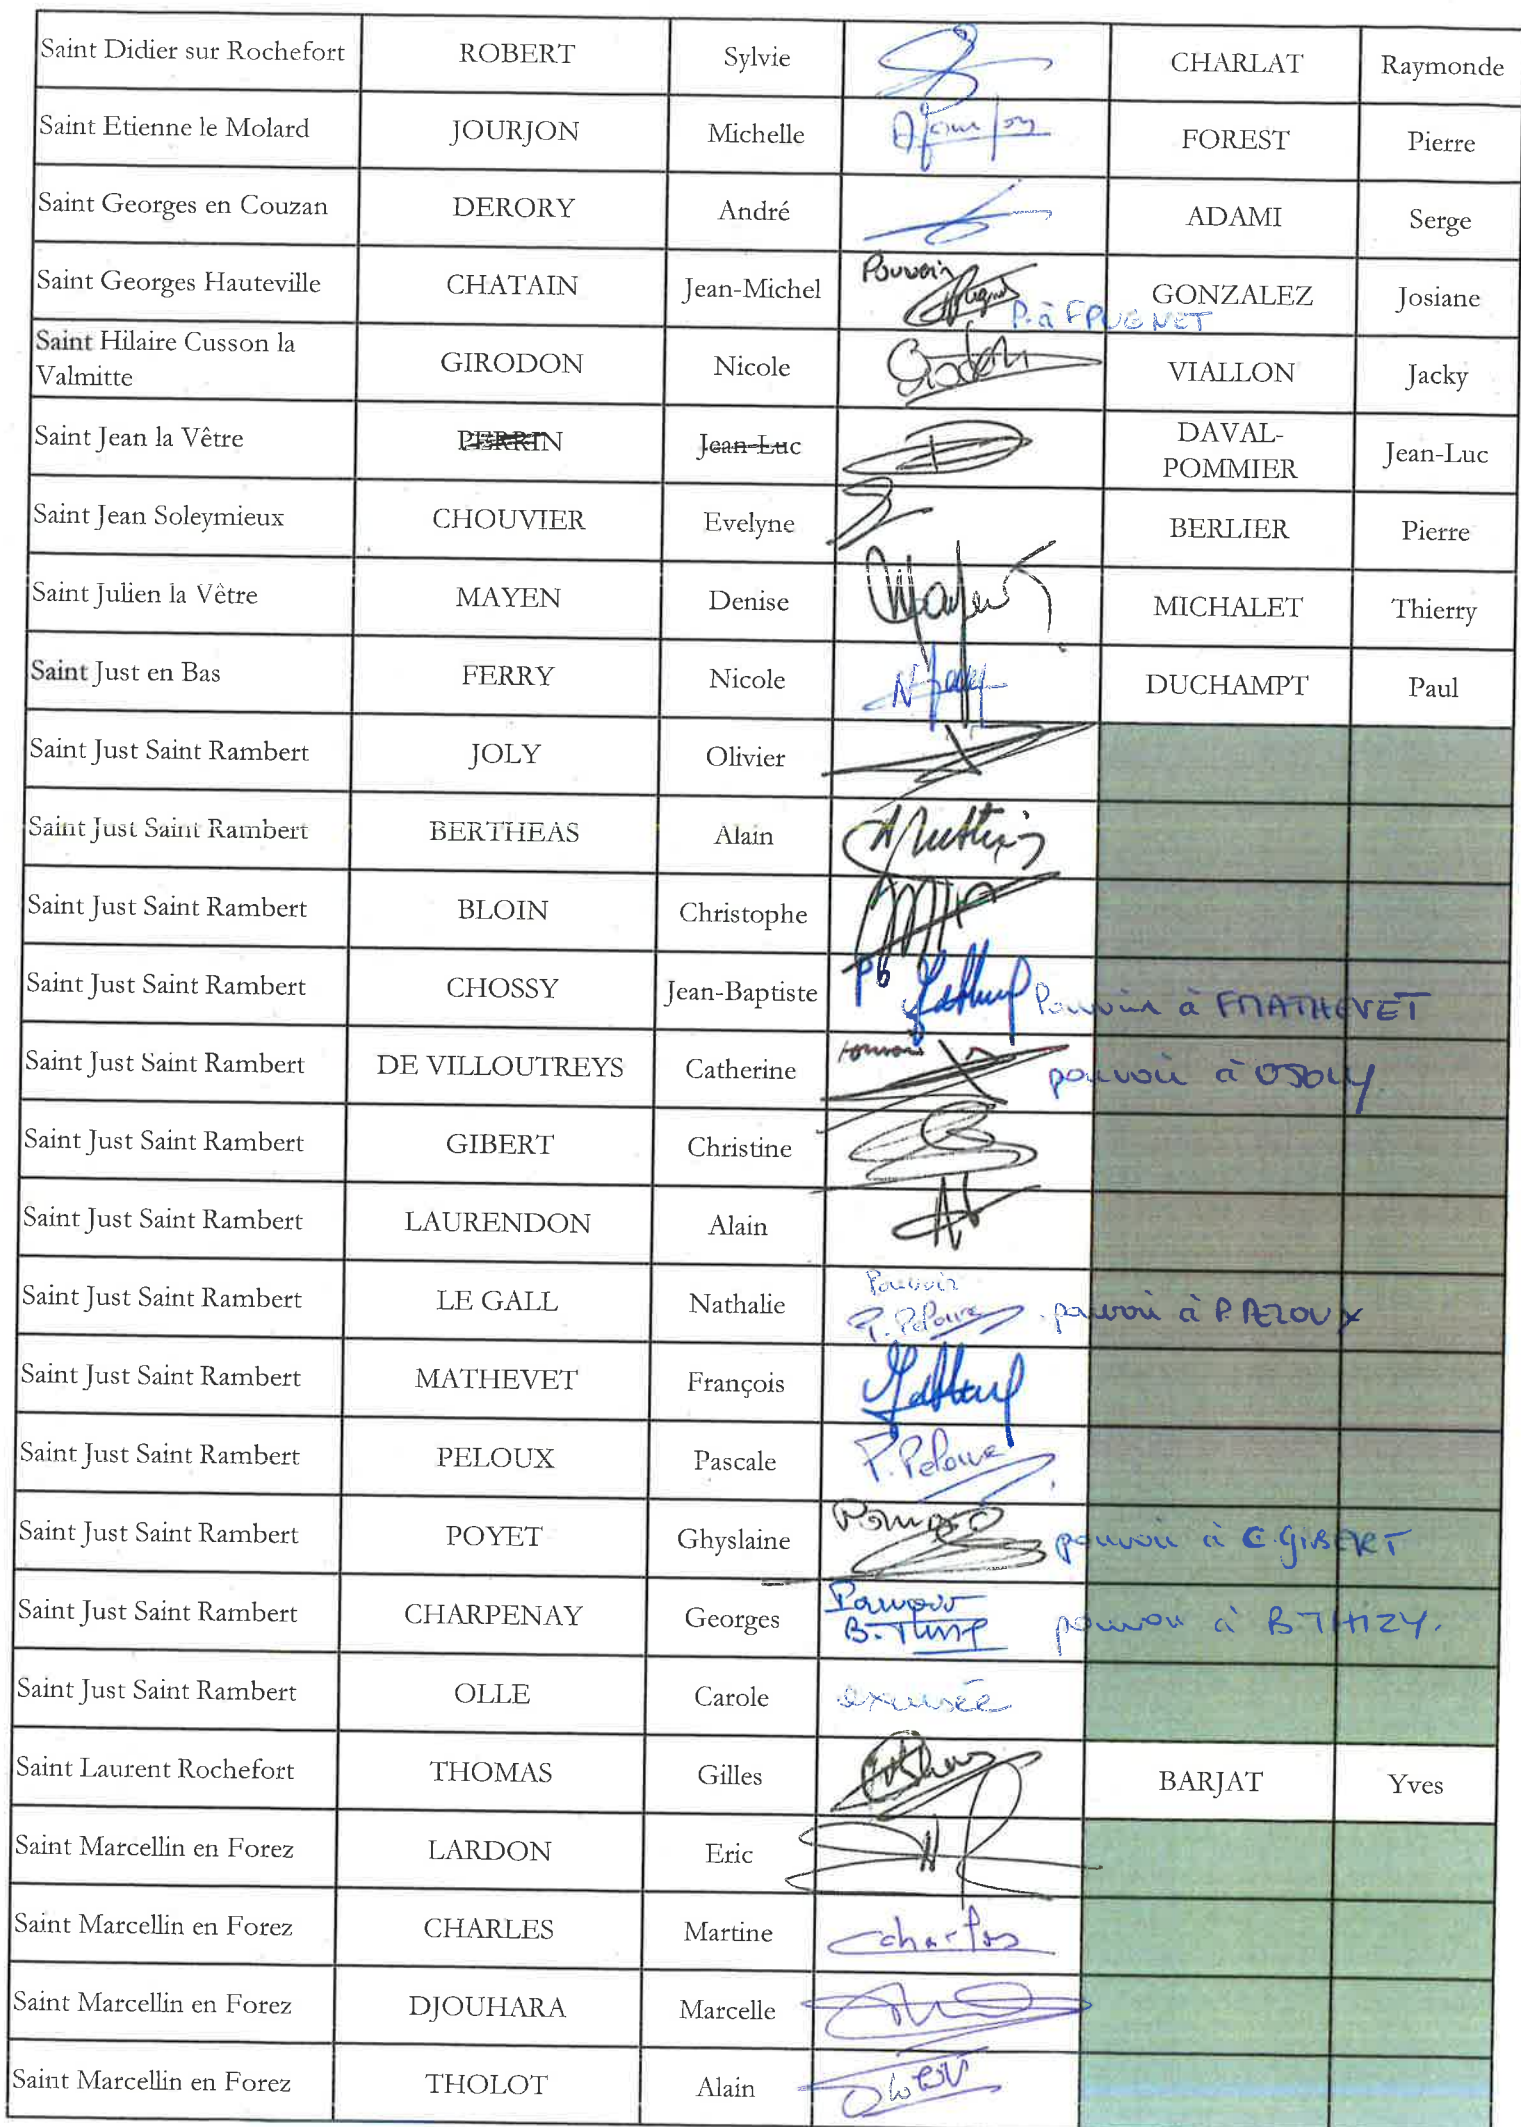 Saint Didier sur Rochefort ROBERT Sylvie CHARLAT Raymonde
Saint Etienne le Molard JOURJON Michelle FOREST Pierre
Saint Georges en Couzan DERORY André ADAMI Serge
Saint Georges Hauteville CHATAIN Jean-Michel Pouvoir P. à F PUGNET GONZALEZ Josiane
Saint Hilaire Cusson la
Valmitte GIRODON Nicole Girodon VIALLON Jacky
Saint Jean la Vêtre PERRIN Jean-Luc DAVAL-
POMMIER Jean-Luc
Saint Jean Soleymieux CHOUVIER Evelyne BERLIER Pierre
Saint Julien la Vêtre MAYEN Denise MICHALET Thierry
Saint Just en Bas FERRY Nicole DUCHAMPT Paul
Saint Just Saint Rambert JOLY Olivier
Saint Just Saint Rambert BERTHEAS Alain
Saint Just Saint Rambert BLOIN Christophe
Saint Just Saint Rambert CHOSSY Jean-Baptiste Pouvoir à F MATHEVET
Saint Just Saint Rambert DE VILLOUTREYS Catherine pouvoir à O JOLY
Saint Just Saint Rambert GIBERT Christine
Saint Just Saint Rambert LAURENDON Alain
Saint Just Saint Rambert LE GALL Nathalie Pouvoir P. Peloux pouvoir à P. PELOUX
Saint Just Saint Rambert MATHEVET François
Saint Just Saint Rambert PELOUX Pascale P. Peloux
Saint Just Saint Rambert POYET Ghyslaine Pouvoir pouvoir à C. GIBERT
Saint Just Saint Rambert CHARPENAY Georges Pouvoir B. Thizy pouvoir à B THIZY.
Saint Just Saint Rambert OLLE Carole excusée
Saint Laurent Rochefort THOMAS Gilles BARJAT Yves
Saint Marcellin en Forez LARDON Eric
Saint Marcellin en Forez CHARLES Martine Charles
Saint Marcellin en Forez DJOUHARA Marcelle
Saint Marcellin en Forez THOLOT Alain